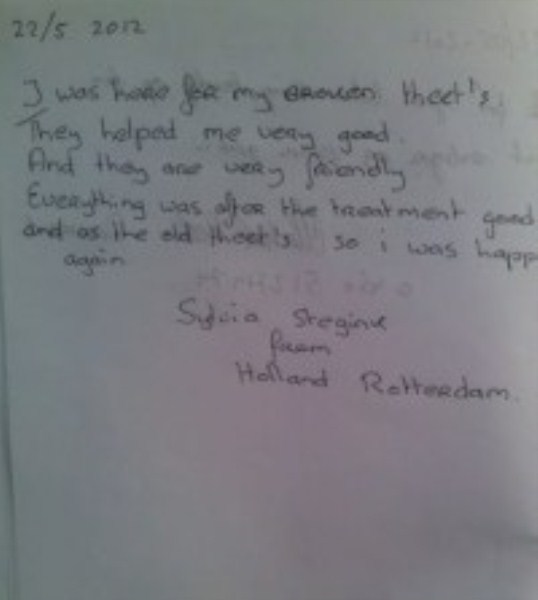 22/5 2012
I was here for my brouken theet's
They helped me very good.
And they are very friendly
Everything was after the treatment good
and as the old theet's so i was happ
again
Sylvia Stegink
from
Holland Rotterdam.